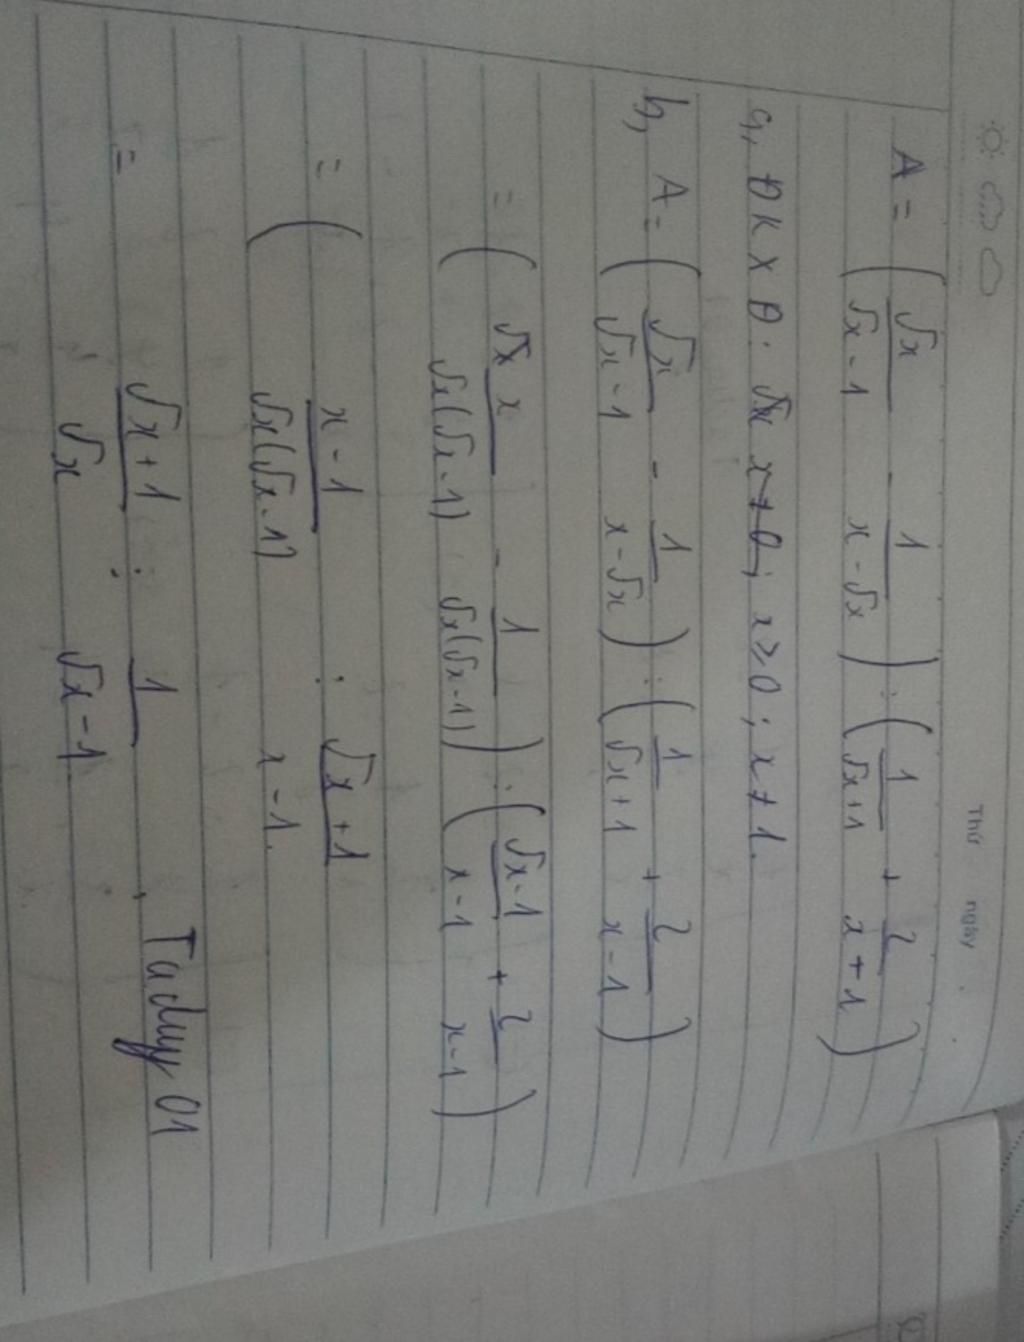 Thứ ngày
A = (√x/(√x - 1) - 1/(x - √x)) : (1/(√x + 1) + 2/(x + 1))
a, ĐKXĐ: x ≠ 0; x ≥ 0; x ≠ 1.
b, A = (√x/(√x - 1) - 1/(x - √x)) : (1/(√x + 1) + 2/(x - 1))
= (x/(√x(√x - 1)) - 1/(√x(√x - 1))) : ((√x - 1)/(x - 1) + 2/(x - 1))
= ( (x - 1)/(√x(√x - 1)) : (√x + 1)/(x - 1).
= (√x + 1)/√x : 1/(√x - 1) . Taduy 01